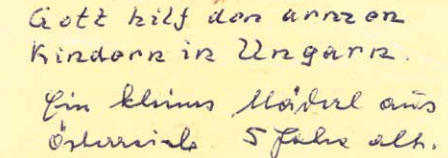 Gott hilf den armen
Kindern in Ungarn.
Ein kleines Mäderl aus
Österreich 5 Jahre alt.